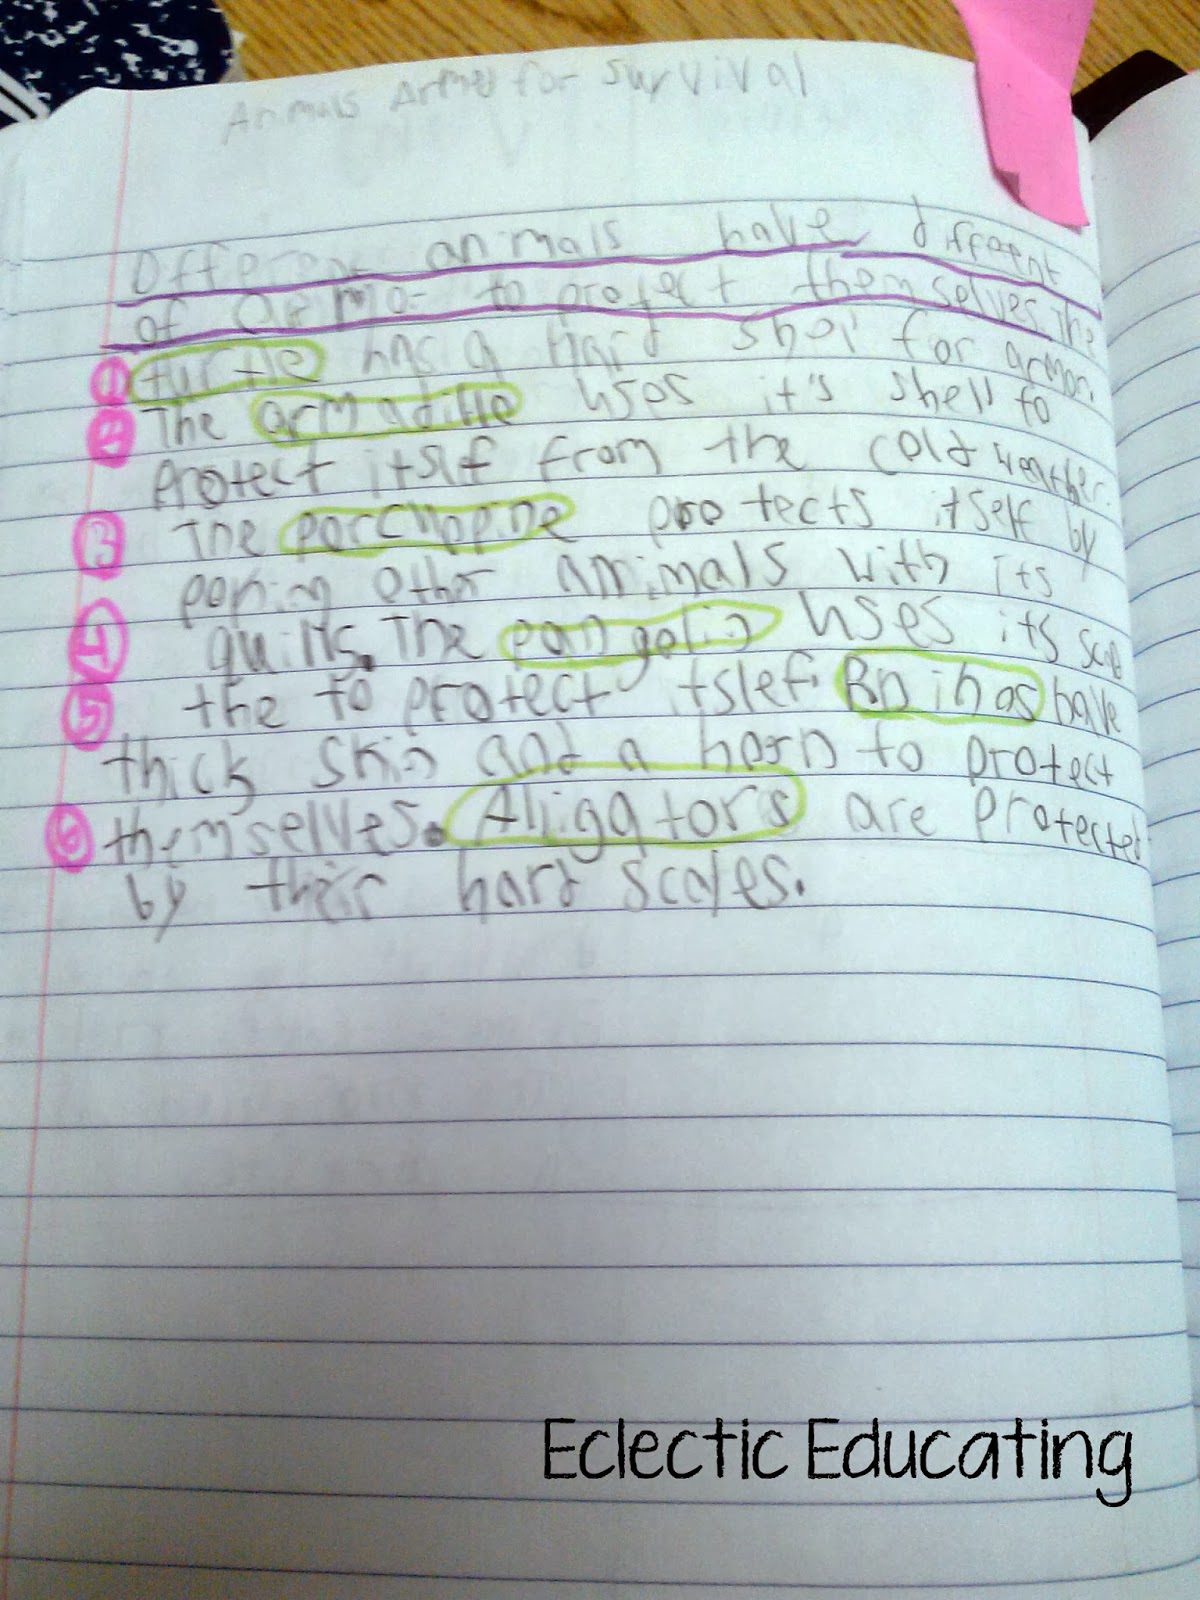 Animals Armed for Survival
Different animals have different
of armor to protect themselves. The
1 turtle has a hard shel for armor.
2 The armadillo uses it's shell to
protect itslf from the cold weather.
3 The porcuopine protects itself by
poking other animals with its
4 quills. The pangolin uses its
5 the to protect itslef. Rnihos have
thick skin and a horn to protect
6 themselves. Aliggators are protected
by their hard scales.
Eclectic Educating